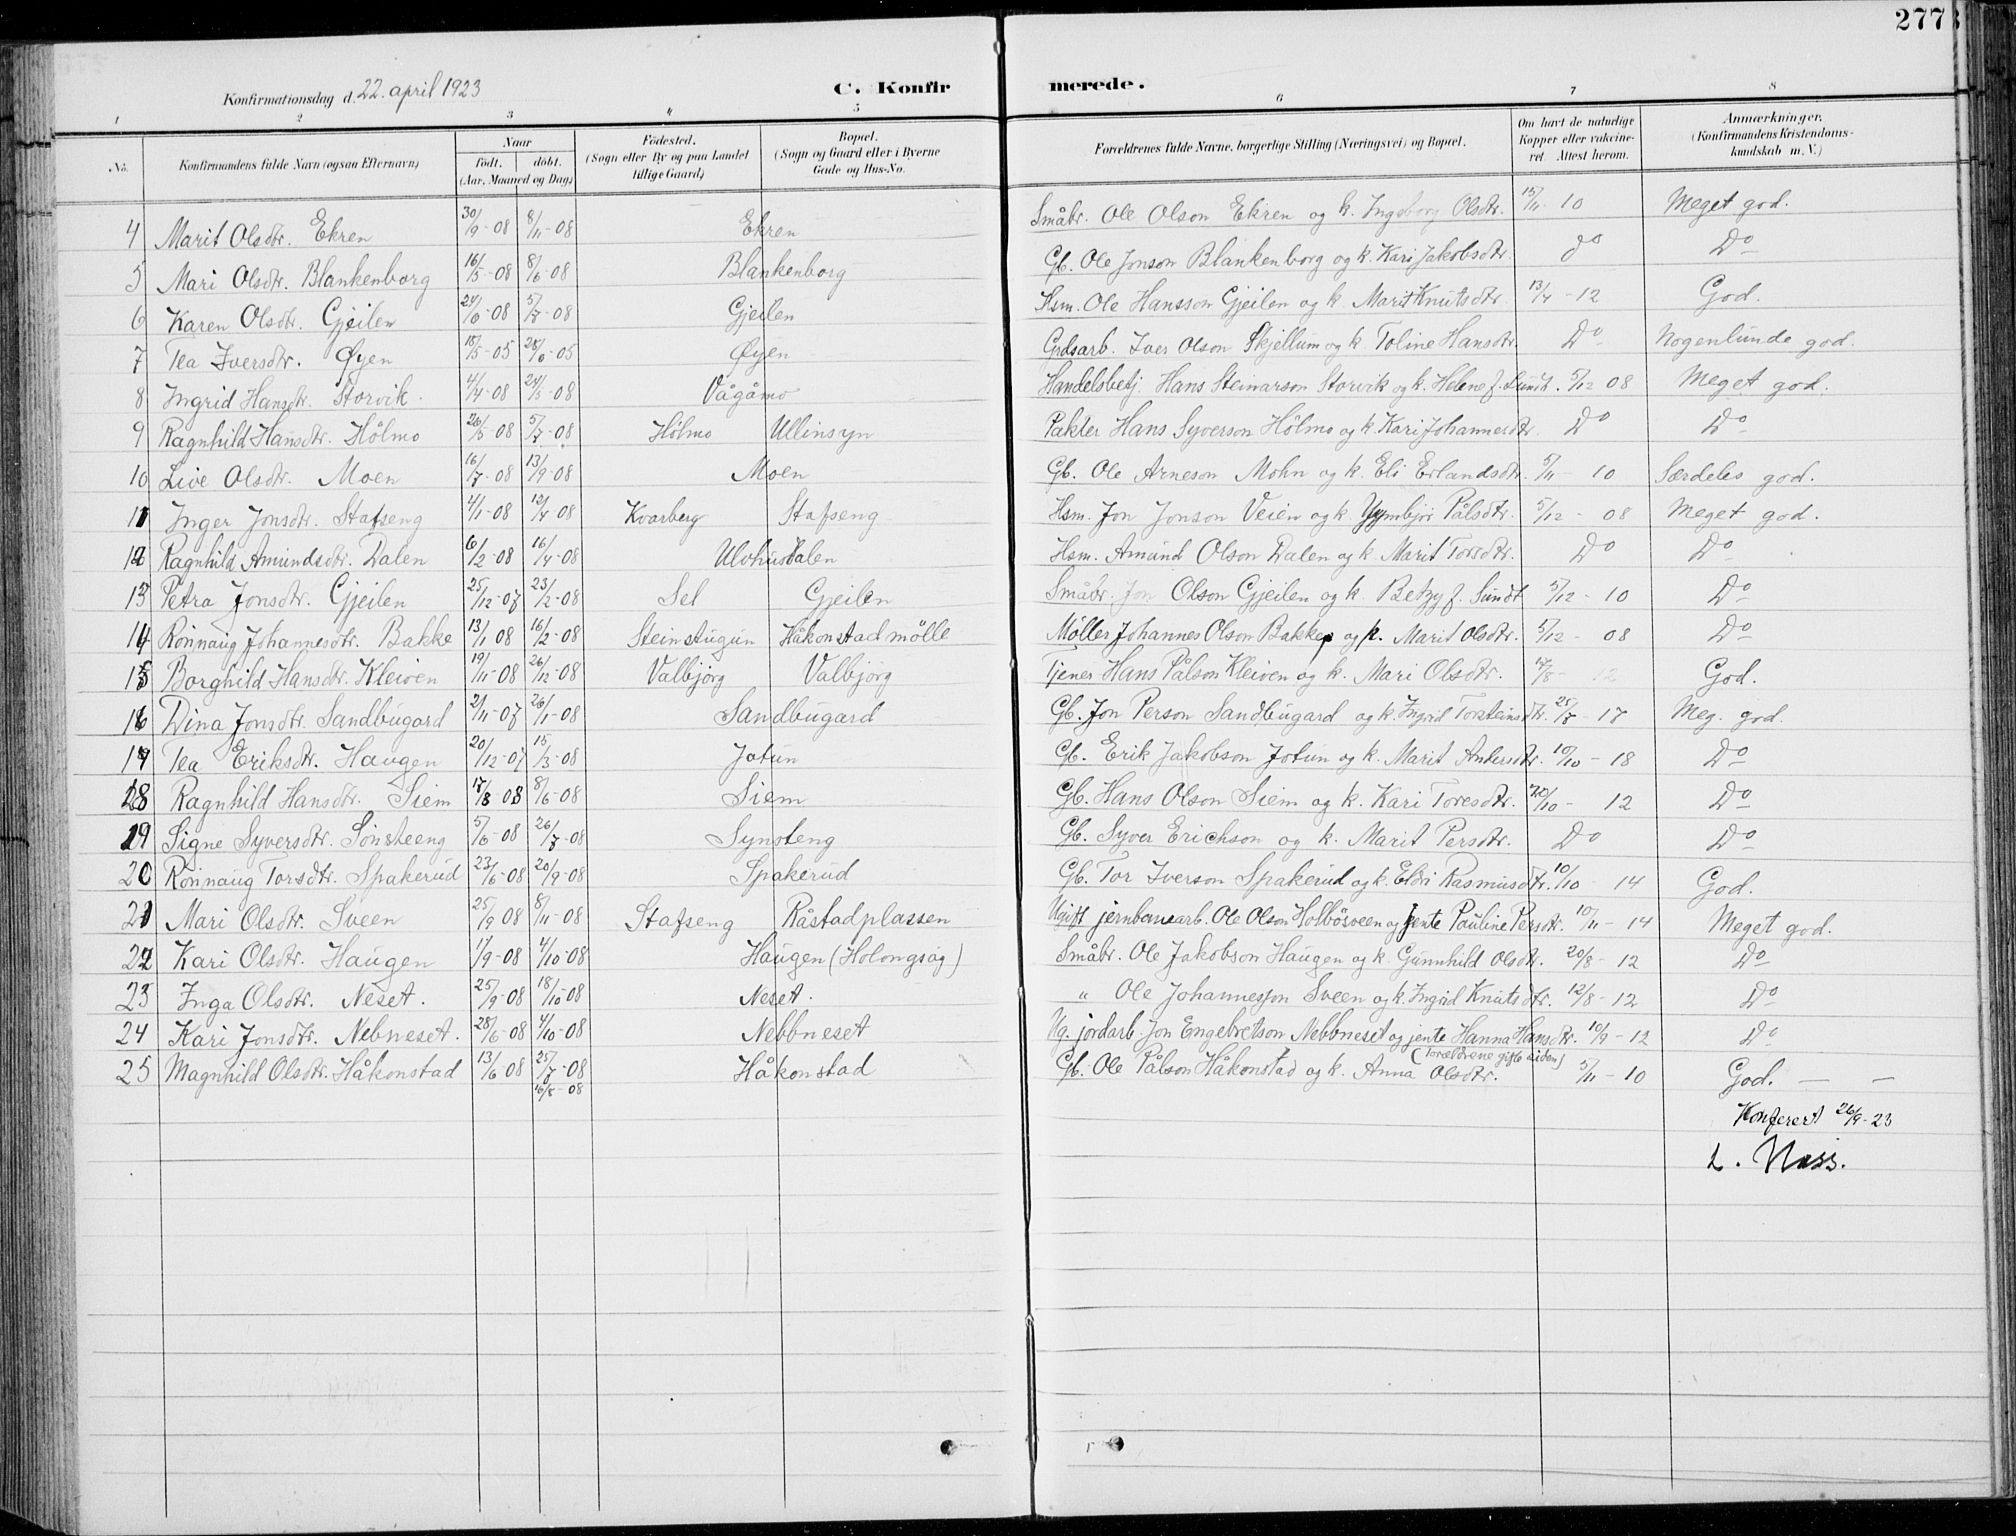 277
Konfirmationsdag d. 22. april 1923
C. Konfirmerede.
1 2 3 4 5 6 7 8
No.
Konfirmandens fulde Navn (ogsaa Efternavn)
Naar
födt. döbt.
(Aar, Maaned og Dag)
Födested.
(Sogn eller By og paa Landet tillige Gaard)
Bopæl.
(Sogn og Gaard eller i Byerne Gade og Hus-No.
Forældrenes fulde Navne, borgerlige Stilling (Næringsvei) og Bopæl.
Om havt de naturlige Kopper eller vakcineret. Attest herom.
Anmærkninger.
(Konfirmandens Kristendomskundskab m. V.)
4 Marit Olsdtr. Ekren 30/9-08 8/11-08 Ekren Småbr. Ole Olson Ekren og k. Ingeborg Olsdtr. 15/11-10 Meget god.
5 Mari Olsdtr. Blankenborg 16/5-08 8/6-08 Blankenborg Gb. Ole Jonson Blankenborg og k. Kari Jakobsdtr. do Do
6 Karen Olsdtr. Gjeilen 24/6-08 5/7-08 Gjeilen Hsm. Ole Hansson Gjeilen og k. Marit Knutsdtr. 13/7-12 God.
7 Tea Iversdtr. Øyen 18/5-05 28/6-05 Øyen Grdsarb. Iver Olson Skjellum og k. Toline Hansdtr. Do Nogenlunde god.
8 Ingrid Hansdtr. Storvik. 4/4-08 24/5-08 Vågåmo Handelsbetj. Hans Steinarson Storvik og k. Helene f. Sundt. 5/12 08 Meget god.
9 Ragnhild Hansdtr. Hölmo 26/5-08 5/7-08 Hölmo Ullinsyn Pakter Hans Syverson Hölmo og k. Kari Johannesdtr. Do Do
10 Live Olsdtr. Moen 16/7-08 13/9-08 Moen Gb. Ole Arneson Mohn og k. Eli Erlandsdtr. 5/11-10 Særdeles god.
11 Inger Jonsdtr. Stafseng 4/1-08 12/4-08 Kvarberg Stafseng Hsm. Jon Jonson Veien og k. Pålsdtr. 5/12-08 Meget god.
12 Ragnhild Amundsdtr. Dalen 6/2-08 16/4-08 Ulvhusdalen Hsm. Amund Olson Dalen og k. Marit Torsdtr. Do Do
13 Petra Jonsdtr. Gjeilen 25/12-07 23/2-08 Sel Gjeilen Småbr. Jon Olson Gjeilen og k. Betzy f. Sundt 5/12-10 Do
14 Rönnaug Johannesdtr. Bakke 13/1 08 16/2-08 Steinstugun Håkonstad mölle Møller Johannes Olson Bakke og k. Marit Olsdtr. 5/12-08 Do
15 Borghild Hansdtr. Kleiven 19/11-08 26/12-08 Valbjörg Valbjörg Tjener Hans Pålson Kleiven og k. Mari Olsdtr. 17/8-12 God.
16 Dina Jonsdtr. Sandbugard 2/11-07 26/1-08 Sandbugard Gb. Jon Person Sandbugard og k. Ingrid Torsteinsdtr. 25/7-17 Meg. god.
17 Tea Eriksdtr. Haugen 20/12-07 15/3-08 Jotun Gb. Erik Jakobson Jotun og k. Marit Andersdtr. 10/10-18 Do
18 Ragnhild Hansdtr. Siem 17/3-08 8/6-08 Siem Gb. Hans Olson Siem og k. Kari Toresdtr. 20/10-12 Do
19 Signe Syversdtr. Sönsteeng 5/6-08 26/7-08 Synsteng Gb. Syver Erichson og k. Marit Persdtr. Do Do
20 Rönnaug Torsdtr. Spakerud 23/6-08 20/9-08 Spakerud Gb. Tor Iverson Spakerud og k. Eldri Rasmusdtr. 10/10-14 God.
21 Mari Olsdtr. Sveen 25/9 08 8/11-08 Stafseng Råstadplassen Ugift jernbanearb. Ole Olson Holbösveen og jente Pauline Persdtr. 10/11-14 Meget god.
22 Kari Olsdtr. Haugen 17/9-08 4/10-08 Haugen (Holongsög) Småbr. Ole Jakobson Haugen og k. Gunnhild Olsdtr. 20/8-12 Do
23 Inga Olsdtr. Neset. 25/9-08 18/10-08 Neset. " Ole Johannesson Sveen og k. Ingrid Knutsdtr. 12/8-12 Do
24 Kari Jonsdtr. Nebneset. 28/6-08 4/10-08 Nebbneset Ug. jordarb. Jon Engebretson Nebbneset og jente Hanna Hansdtr. 10/9-12 Do
(Forældrene gifte siden)
25 Magnhild Olsdtr. Håkonstad 13/6 08 25/7-08 Håkonstad Gb. Ole Pålson Håkonstad og k. Anna Olsdtr. 5/11-10 God. — —
16/8-08
Konferert 26/9-23
L. Ness.